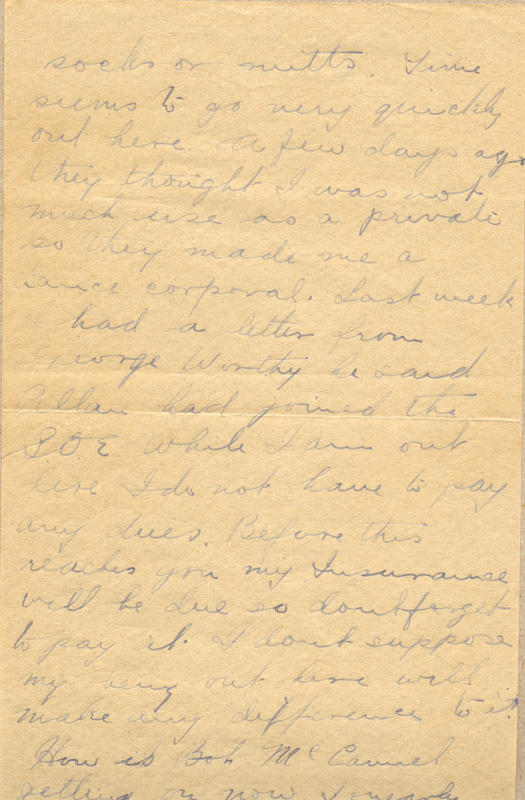 socks or mitts. Time
seems to go very quickly
out here. A few days ago
they thought I was not
much use as a private
so they made me a
lance corporal. Last week
I had a letter from
George Worthy he said
Allan had joined the
SOE while I am out
here I do not have to pay
any dues. Before this
reaches you my Insurance
will be due so dont forget
to pay it. I dont suppose
my being out here will
make any difference to it.
How is Bob McCannel
getting on now I